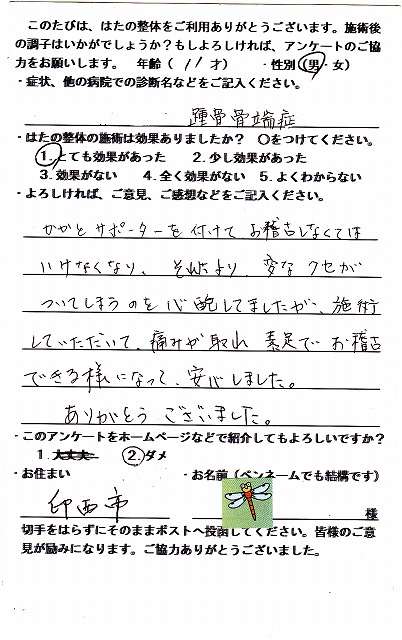 このたびは、はたの整体をご利用ありがとうございます。施術後
の調子はいかがでしょうか？もしよろしければ、アンケートのご協
力をお願いします。 年齢（11才） ・性別（男・女）
・症状、他の病院での診断名などをご記入ください。
踵骨骨端症
・はたの整体の施術は効果ありましたか？ 〇をつけてください。
1.とても効果があった 2.少し効果があった
3.効果がない 4.全く効果がない 5.よくわからない
・よろしければ、ご意見、ご感想などをご記入ください。
かかとサポーターを付けて、お稽古しなくては
いけなくなり、それより、変なクセが
ついてしまうのを心配してましたが、施術
していただいて、痛みが取れ 素足でお稽古
できる様になって、安心しました。
ありがとうございました。
・このアンケートをホームページなどで紹介してもよろしいですか？
1.大丈夫 2.ダメ
・お住まい ・お名前（ペンネームでも結構です）
印西市 様
切手をはらずにそのままポストへ投函してください。皆様のご意
見が励みになります。ご協力ありがとうございました。